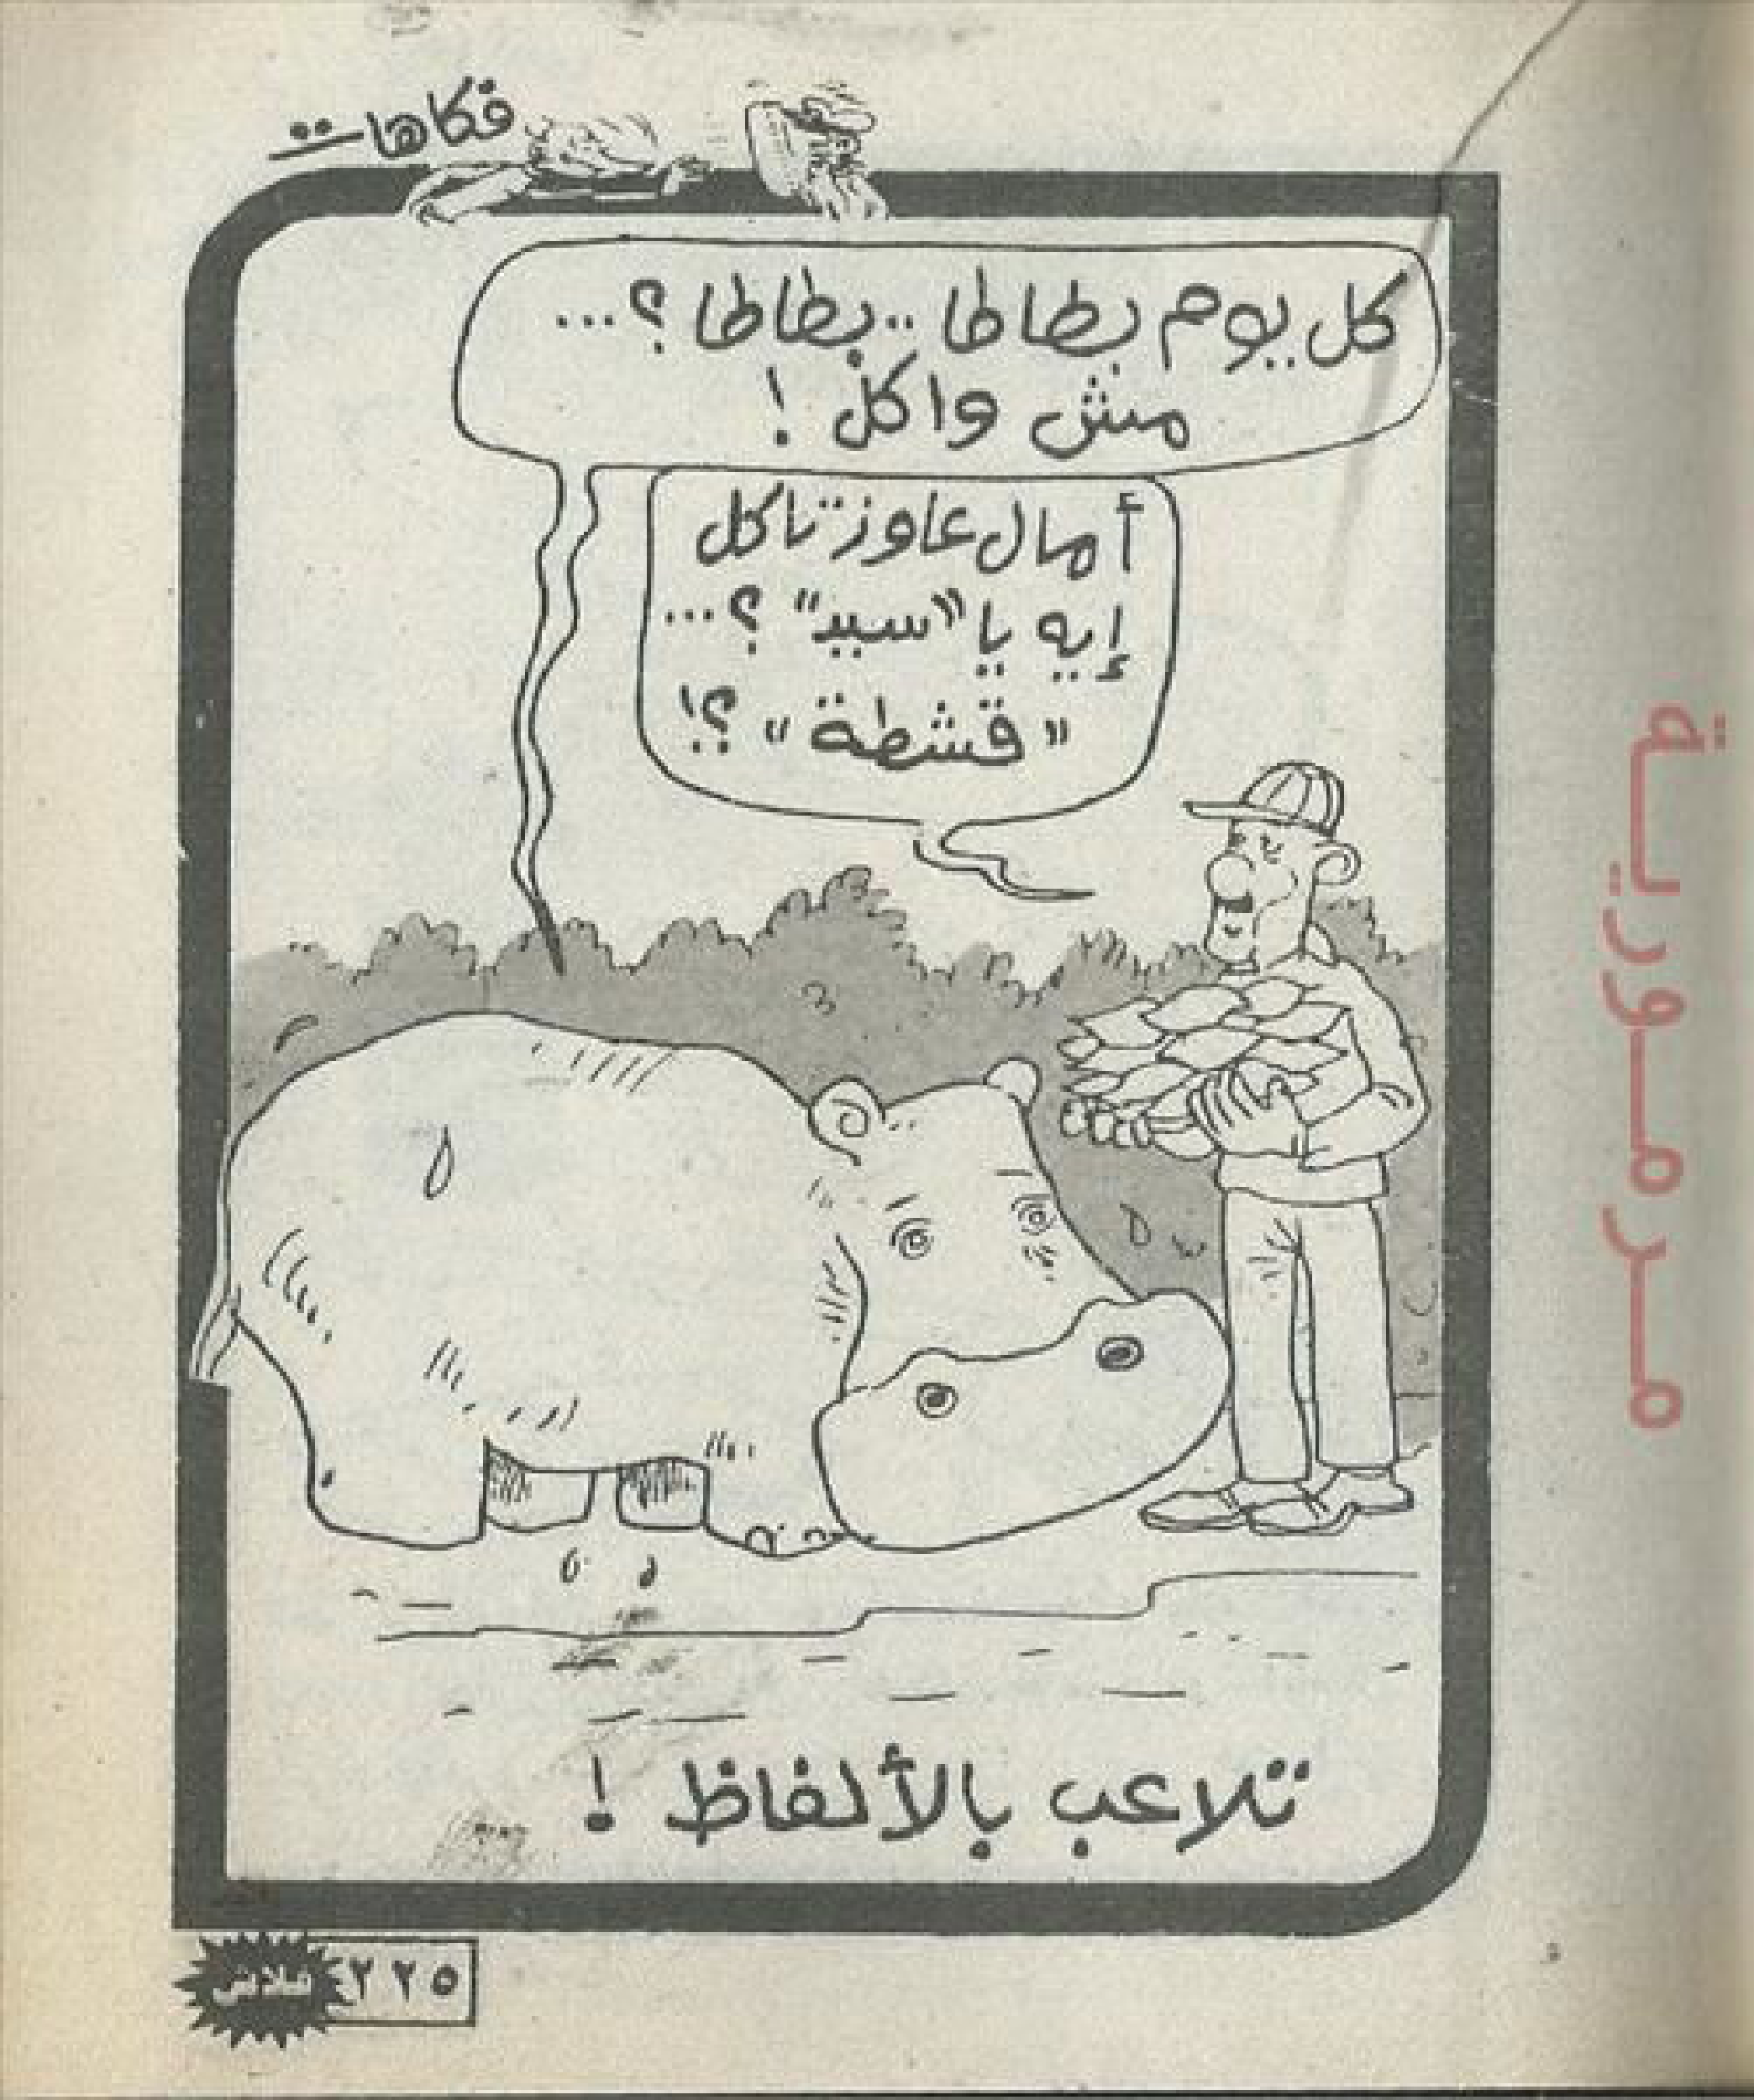 فكاهات
كل يوم بطاطا.. بطاطا؟...
مش واكل!
أمال عاوز تاكل
إيه يا "سيد"؟...
"قشطة"؟!
تلاعب بالألفاظ!
فلاش ٢٢٥
مرمورية